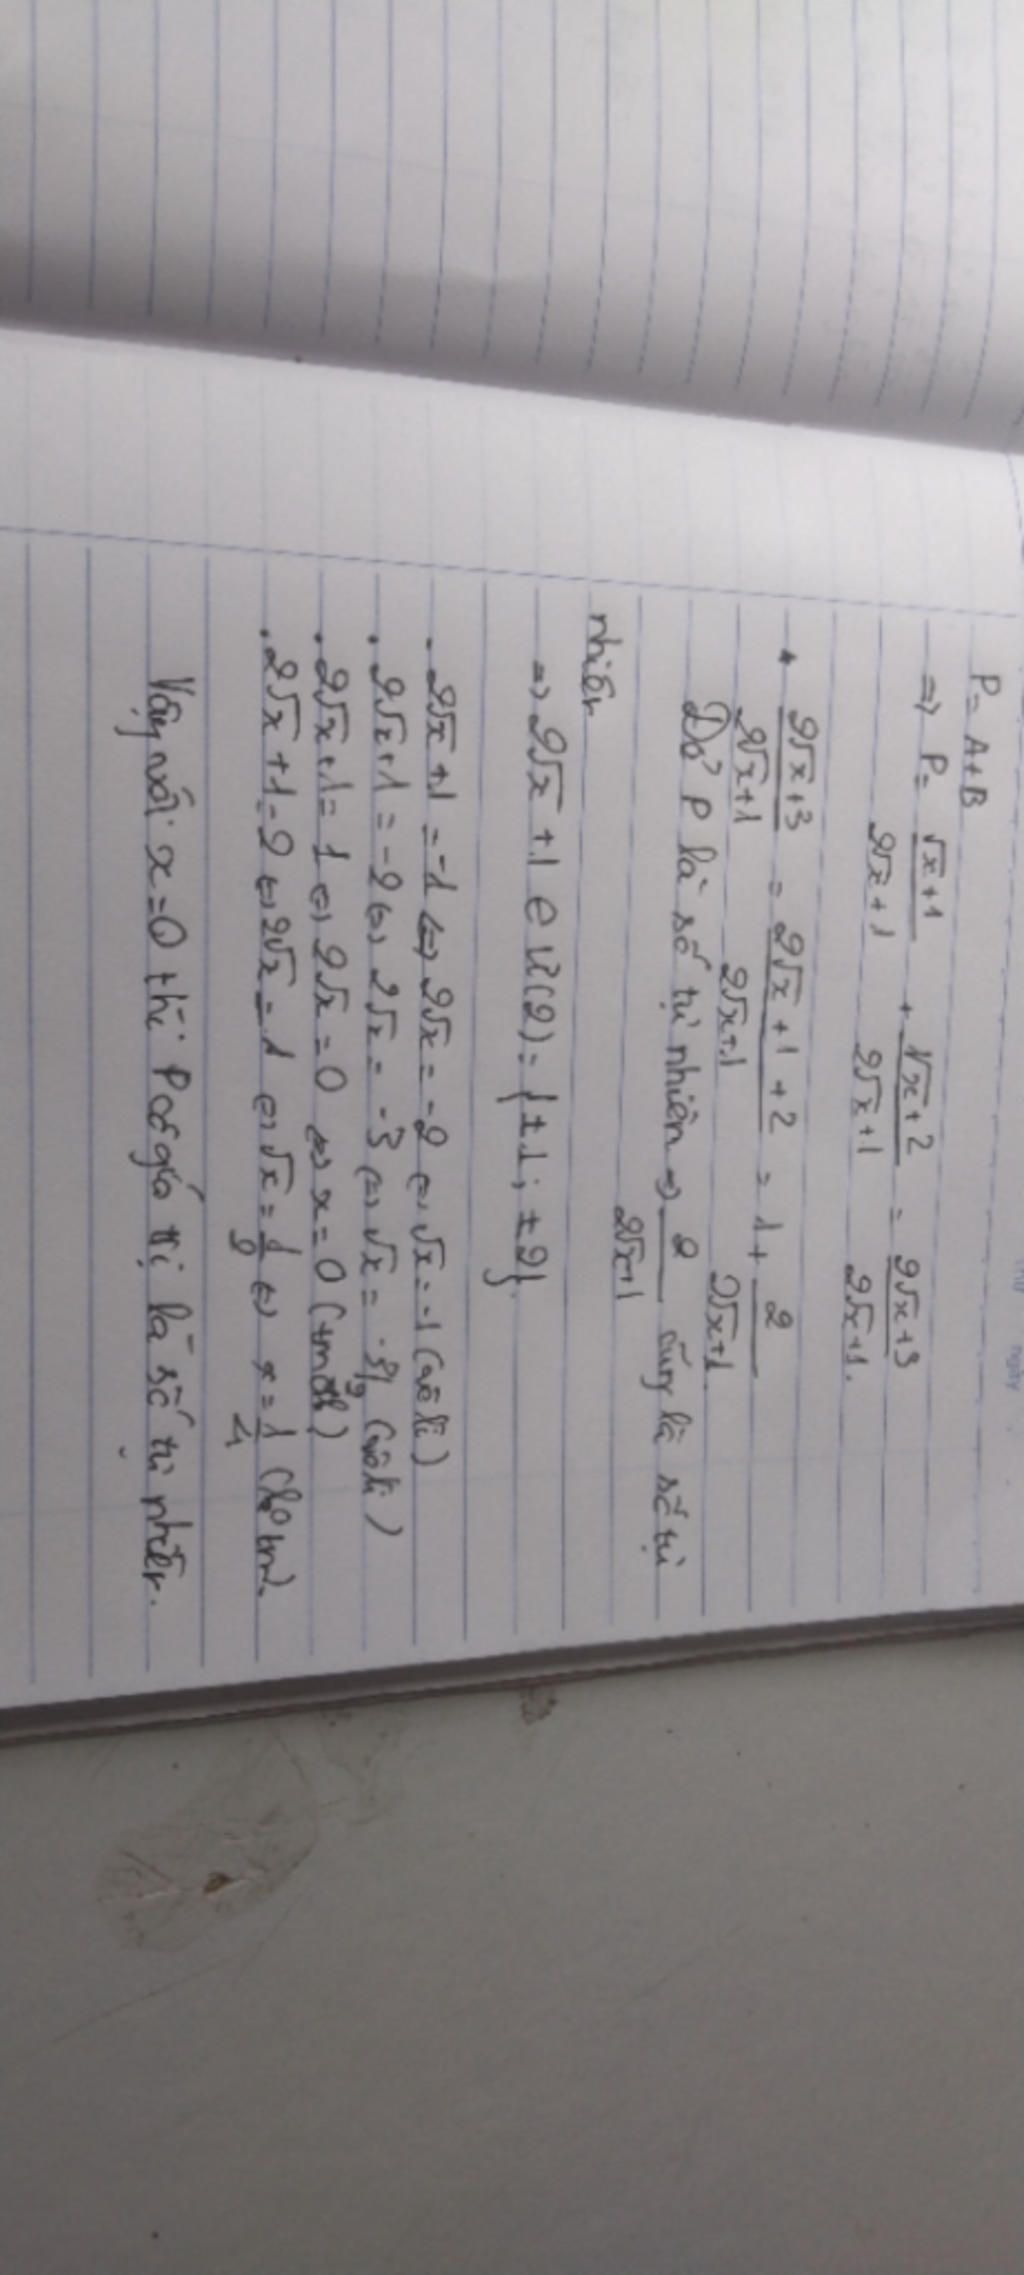 P = A+B
=> P = √x+1 / 2√x+1 + √x+2 / 2√x+1 = 2√x+3 / 2√x+1.
+ 2√x+3 / 2√x+1 = 2√x+1+2 / 2√x+1 = 1 + 2 / 2√x+1.
Để P là số tự nhiên => 2 / 2√x+1 cũng là số tự
nhiên
=> 2√x+1 ∈ Ư(2) = {±1; ±2}.
. 2√x+1 = -1 <=> 2√x = -2 <=> √x = -1 (vô lí)
. 2√x+1 = -2 <=> 2√x = -3 <=> √x = -3/2 (vô lí)
. 2√x+1 = 1 <=> 2√x = 0 <=> x = 0 (tmđk)
. 2√x+1 = 2 <=> 2√x = 1 <=> √x = 1/2 <=> x = 1/4 (ko tm).
Vậy với x=0 thì P có giá trị là số tự nhiên.